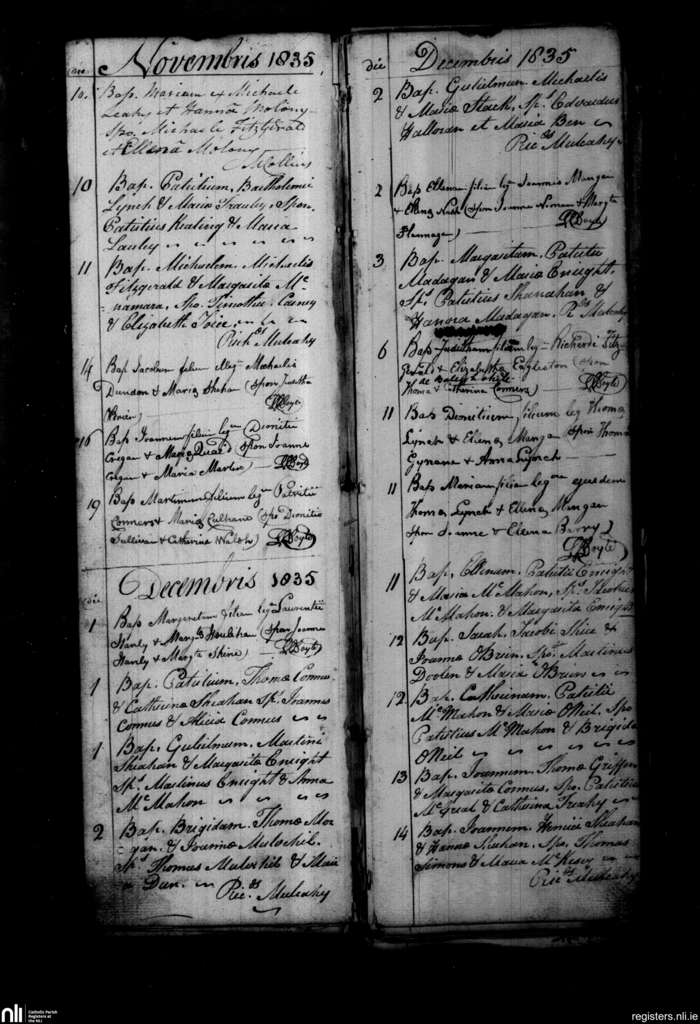 Novembris 1835
die
10. Bap. Mariam ex Michaele
Leahy et Hannâ Molony
Spo. Michaele Fitzgerald
et Ellenâ Molony
McCollins
10 Bap. Patritium, Bartholomei
Lynch & Maria Frauly, Spon.
Patritius Keating & Maria
Lauley
11 Bap. Michaelem, Michaelis
Fitzgerald & Margarita Mc
namara, Spo. Timothia Casney
& Elizabeth Joice
Rich.d Mulcahy
14 Bap Jacobum filium Michaelis
Dundon & Maria Shehan (Spon Juditha
Brien)
Boyle
16 Bap Joannem filium legm Dionitii
Cregan & Maria (Spon Joanne
Cregan & Maria Martin)
Boyle
19 Bap Martinum filium legm Patritii
Conners & Maria Culhane (Spo Dionitio
Sullivan & Catherina Walsh)
Boyle
Decembris 1835
die
1 Bap Margaretam filiam legm Laurentii
Hanly & Margta Houlihan (Spon Joanne
Hanly & Margta Shine)
Boyle
1 Bap. Patritium, Thomæ Connus
& Catherinæ Sheahan Sps. Joannes
Connus & Alicia Connus
1 Bap. Gulielmum, Martini
Sheahan & Margarita Enright
Sps. Martinus Enright & Anna
McMahon
2 Bap. Brigidam, Thomæ Mor-
gan & Joannæ Mulochil
Sps. Thomas Mulochil & Maria
Dun.
Ric.ds Mulcahy
Decembris 1835
die
2 Bap. Gulielmum Michaelis
& Mariæ Stack, Sps. Edvardus
Halloran et Maria Ben
Ric.ds Mulcahy
2 Bap Ellenam filiam leg Joannis Mangan
& Ellena Nash (Spon Joanne & Margta
Flannagan)
Boyle
3 Bap. Margaritam, Patritii
Madagan & Maria Enright,
Sps. Patritius Shanahan &
Hanora Madagan. R. Mulcahy
6 Bap Juditham filiam leg Richardi Fitz
gerald & Elizabetha Eagleston (Spon
Thoma & Catherina Connera)
Boyle
11 Bap Dionitium, filium leg Thomæ
Lynch & Ellena Mangan Spon Thoma
& Anna Lynch
11 Bap Mariam filiam legm ejusdem
Thomæ Lynch & Ellena Mangan
Spon Joanne & Ellena Berry)
Boyle
11 Bap. Ellenam, Patritii Enright
& Maria McMahon, Sps.
McMahon & Margarita Enright
12 Bap. Sarah, Jacobi Shice &
Joannæ OBrien, Spo. Martinus
Doolen & Maria OBrien
12. Bap. Catherinam, Patritii
McMahon & Mariæ ONeil, Spo
Patritius McMahon & Brigida
ONeil
13 Bap. Joannem Thomæ Griffen
& Margarita Connus, Spo. Patritius
& Catherina Frahy
14 Bap. Joannem, Henrici Sheahan
& Hannæ Shehan, Spo. Thomas
Simons & Maria McKesey
Ric.ds Mulcahy
nli
Catholic Parish
Registers at
the NLI
registers.nli.ie